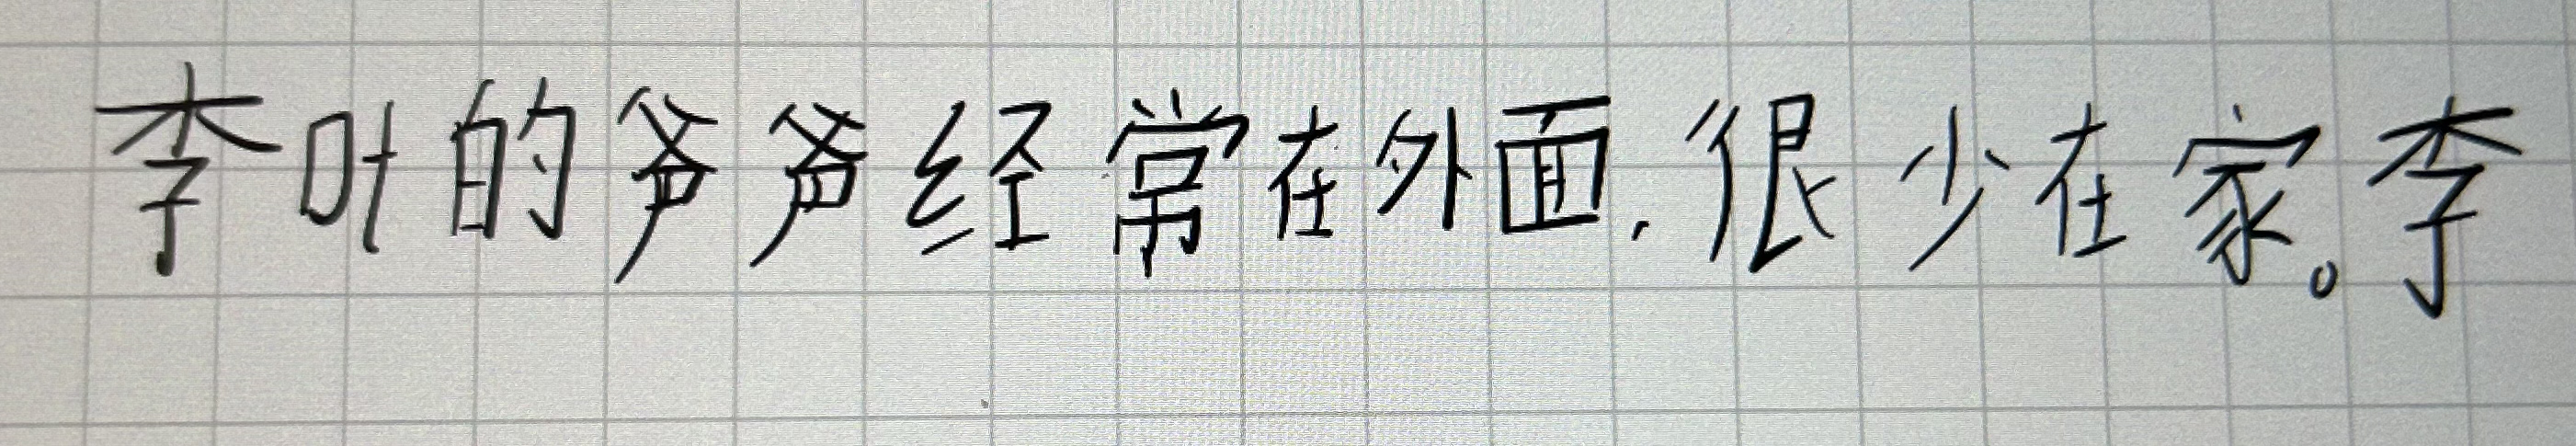 李叶的爷爷经常在外面,很少在家。李